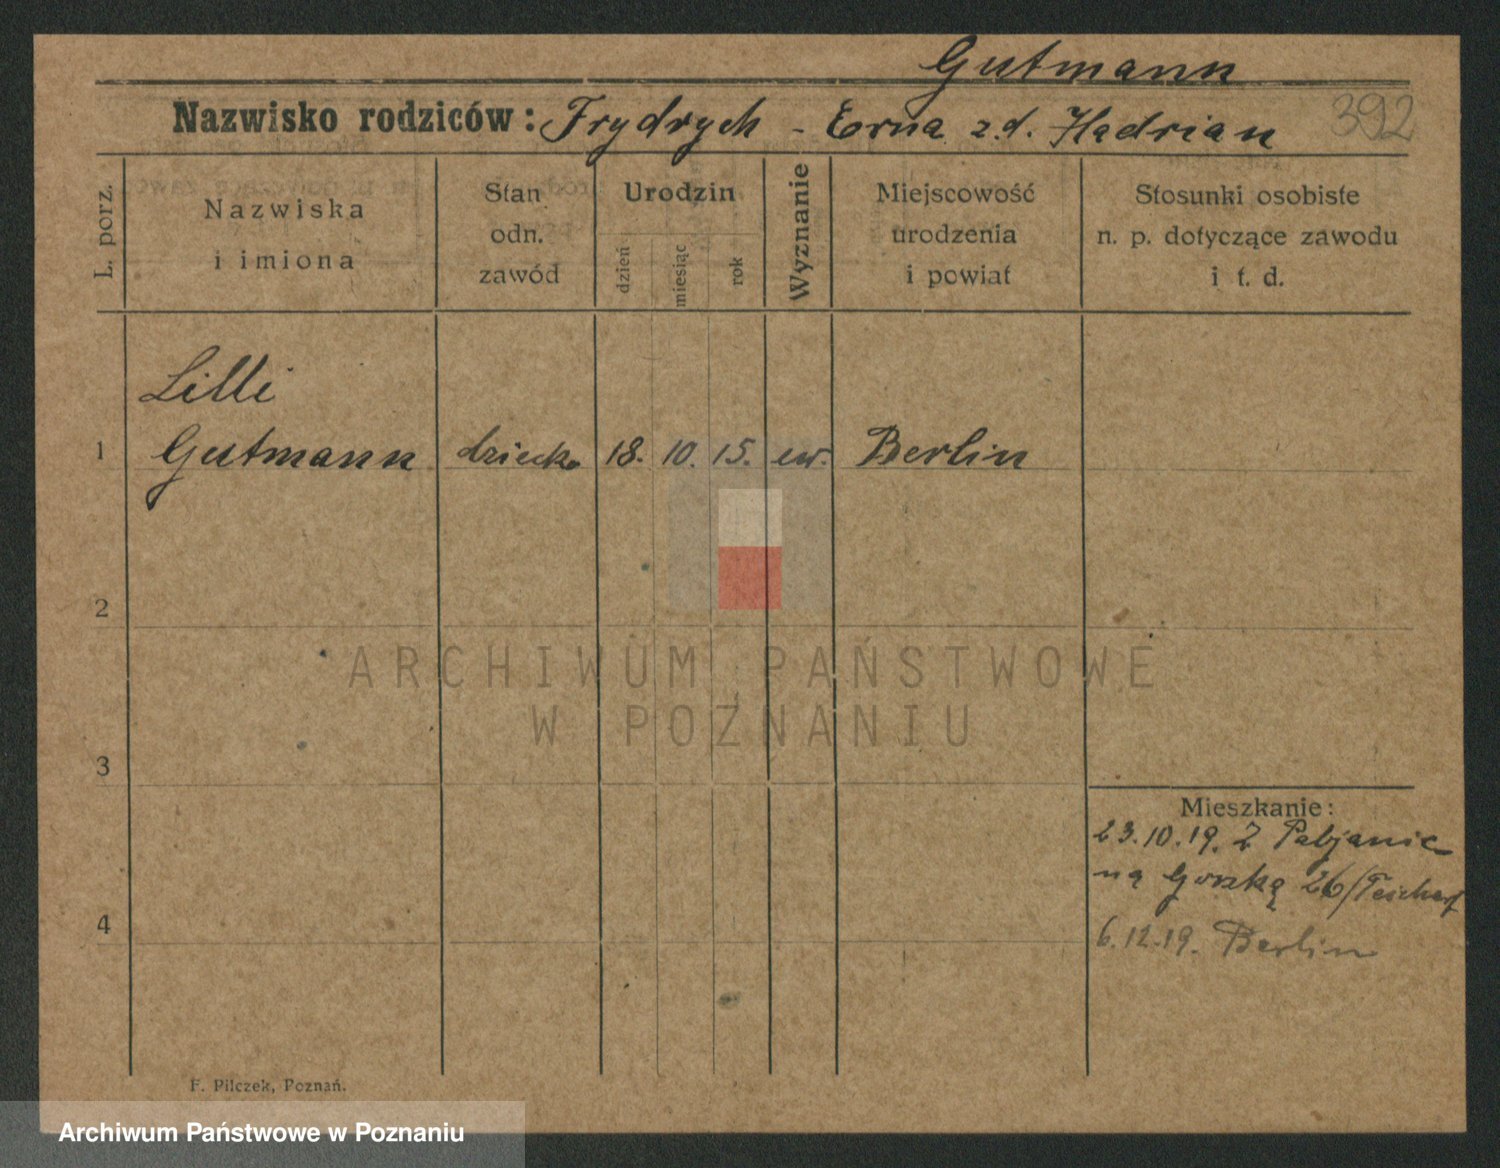 Gutmann
Nazwisko rodziców: Frydrych - Erna z.d. Hadrian 392
L. porz.
Nazwiska
i imiona
Stan
odn.
zawód
Urodzin
dzień
miesiąc
rok
Wyznanie
Miejscowość
urodzenia
i powiat
Stosunki osobiste
n. p. dotyczące zawodu
i t. d.
Lilli
1 Gutmann dziecko 18. 10. 15. ew. Berlin
2
ARCHIWUM PAŃSTWOWE
W POZNANIU
3
Mieszkanie:
23.10.19. Z Pabjanic
na Gorską 26/
4
6.12.19. Berlin
F. Pilczek, Poznań.
Archiwum Państwowe w Poznaniu